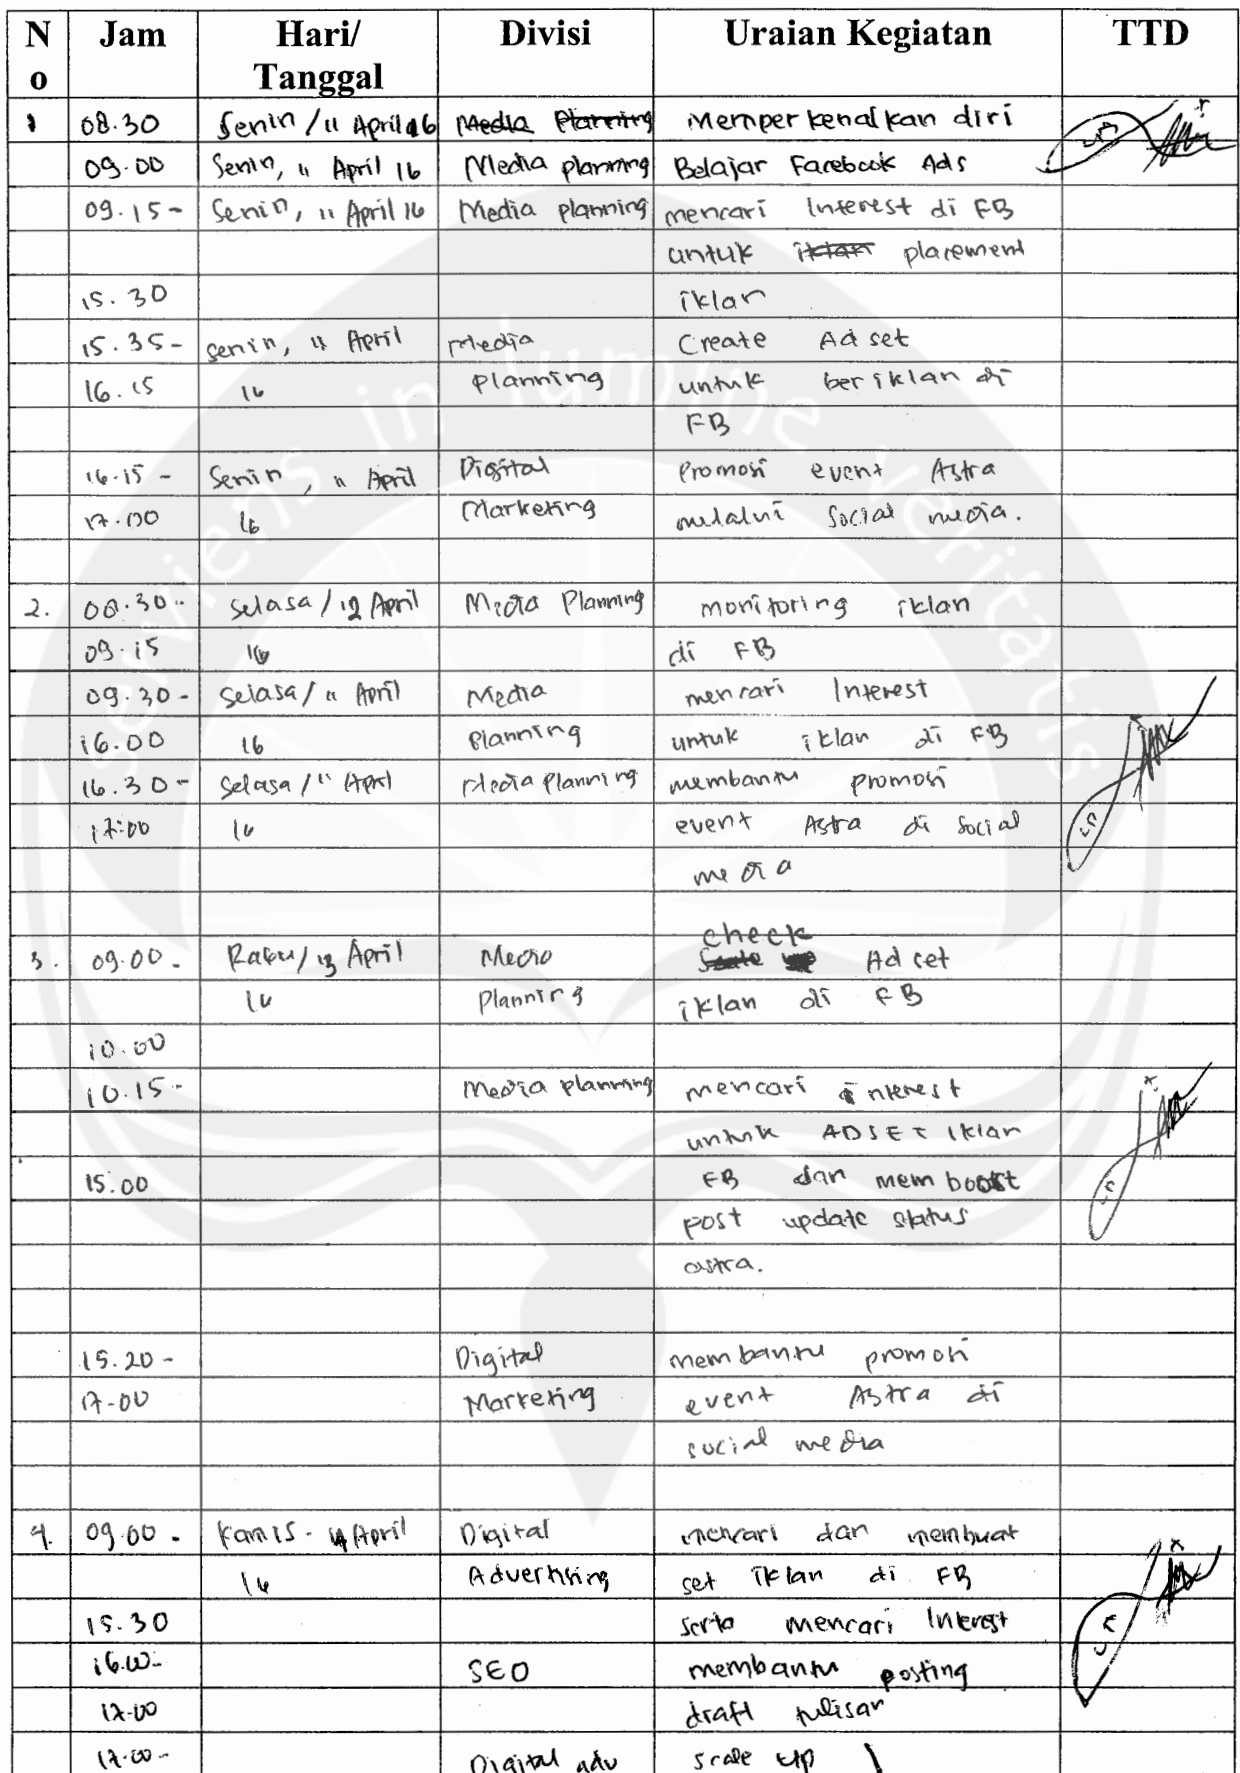 N o Jam Hari/ Tanggal Divisi Uraian Kegiatan TTD
1 08.30 Senin / 11 April 16 Media Planning Memperkenalkan diri
09.00 Senin, 11 April 16 Media planning Belajar Facebook Ads
09.15 - Senin, 11 April 16 Media planning mencari Interest di FB
untuk iklan placement
15.30 iklan
15.35 - Senin, 11 April Media Create Ad set
16.15 16 Planning untuk beriklan di
FB
16.15 - Senin, 11 April Digital Promosi event Astra
17.00 16 Marketing melalui Social media.
2. 08.30 - Selasa / 12 April Media Planning monitoring iklan
09.15 16 di FB
09.30 - Selasa / 11 April Media mencari Interest
16.00 16 Planning untuk iklan di FB
16.30 - Selasa / 11 April Media Planning membantu promosi
17:00 16 event Astra di Social
media
check
3. 09.00 - Rabu / 13 April Media Ad set
16 Planning iklan di FB
10.00
10.15 - Media planning mencari interest
untuk ADSET iklan
15.00 FB dan memboost
post update status
astra.
15.20 - Digital membantu promosi
17-00 Marketing event Astra di
social media
4. 09.00 - Kamis - 14 April Digital mencari dan membuat
16 Advertising set iklan di FB
15.30 serta mencari Interest
16.00 - SEO membantu posting
17-00 draft tulisan
17.00 - Digital adv scale up
serviens in lumine veritatis